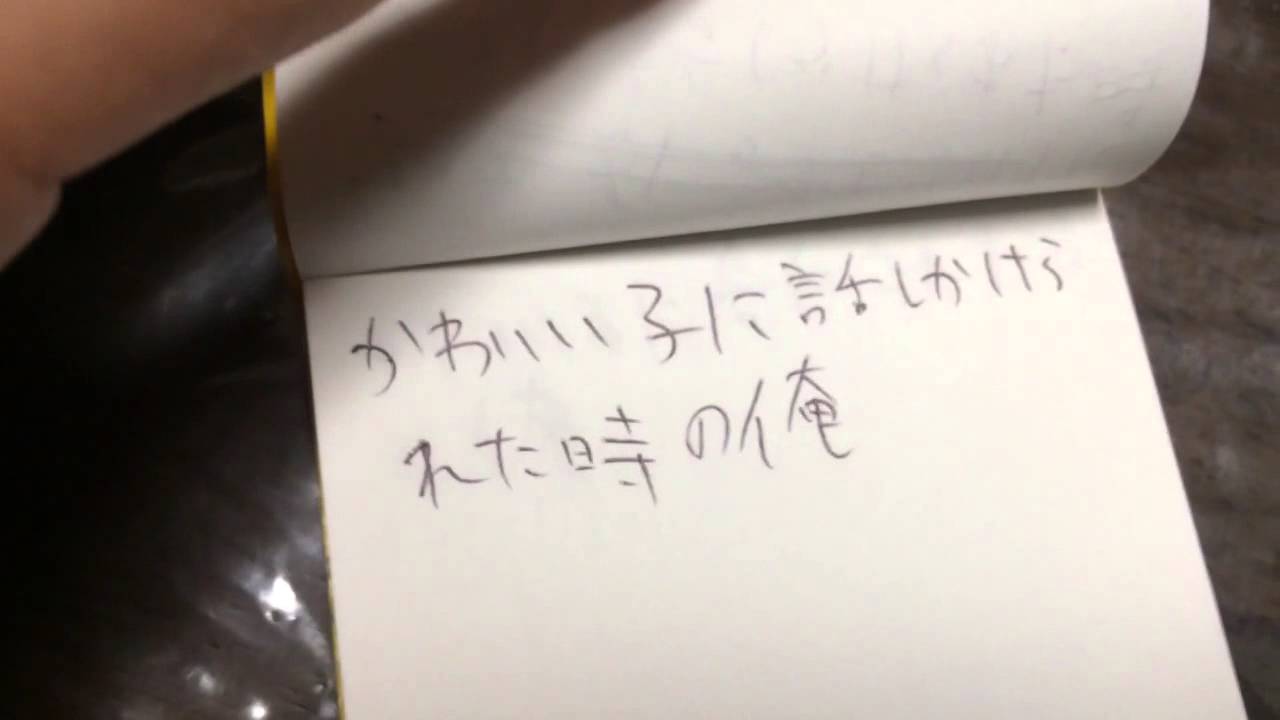 かわいい子に話しかけら
れた時の俺